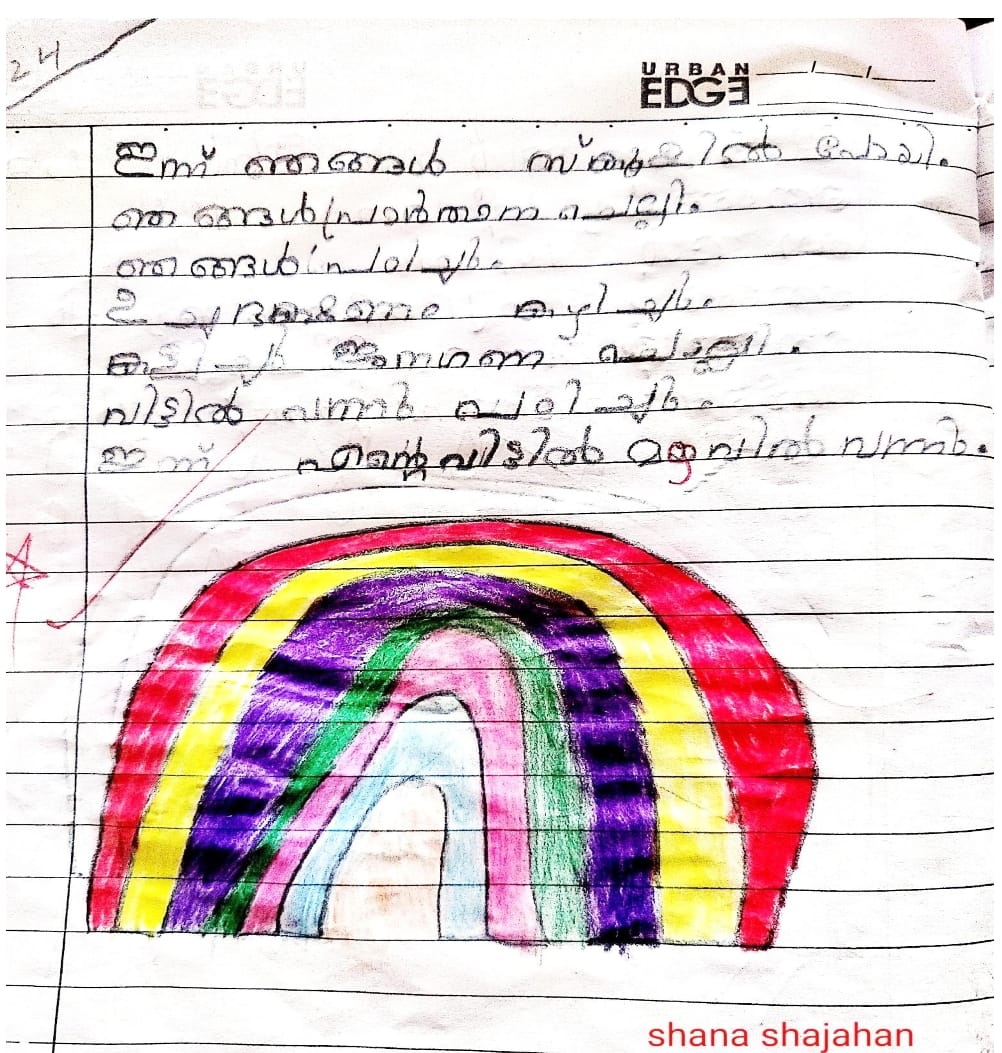 24
URBAN
EDGE
ഇന്ന് ഞങ്ങൾ സ്കൂളിൽ പോയി.
ഞങ്ങൾ പ്രാർത്ഥന ചൊല്ലി.
ഞങ്ങൾ പഠിച്ചു.
ഉച്ചഭക്ഷണം കഴിച്ചു.
കളിച്ചു ജനഗണന ചൊല്ലി.
വീട്ടിൽ വന്നു പഠിച്ചു.
ഇന്ന് എന്റെ വീട്ടിൽ മഴവിൽ വന്നു.
shana shajahan